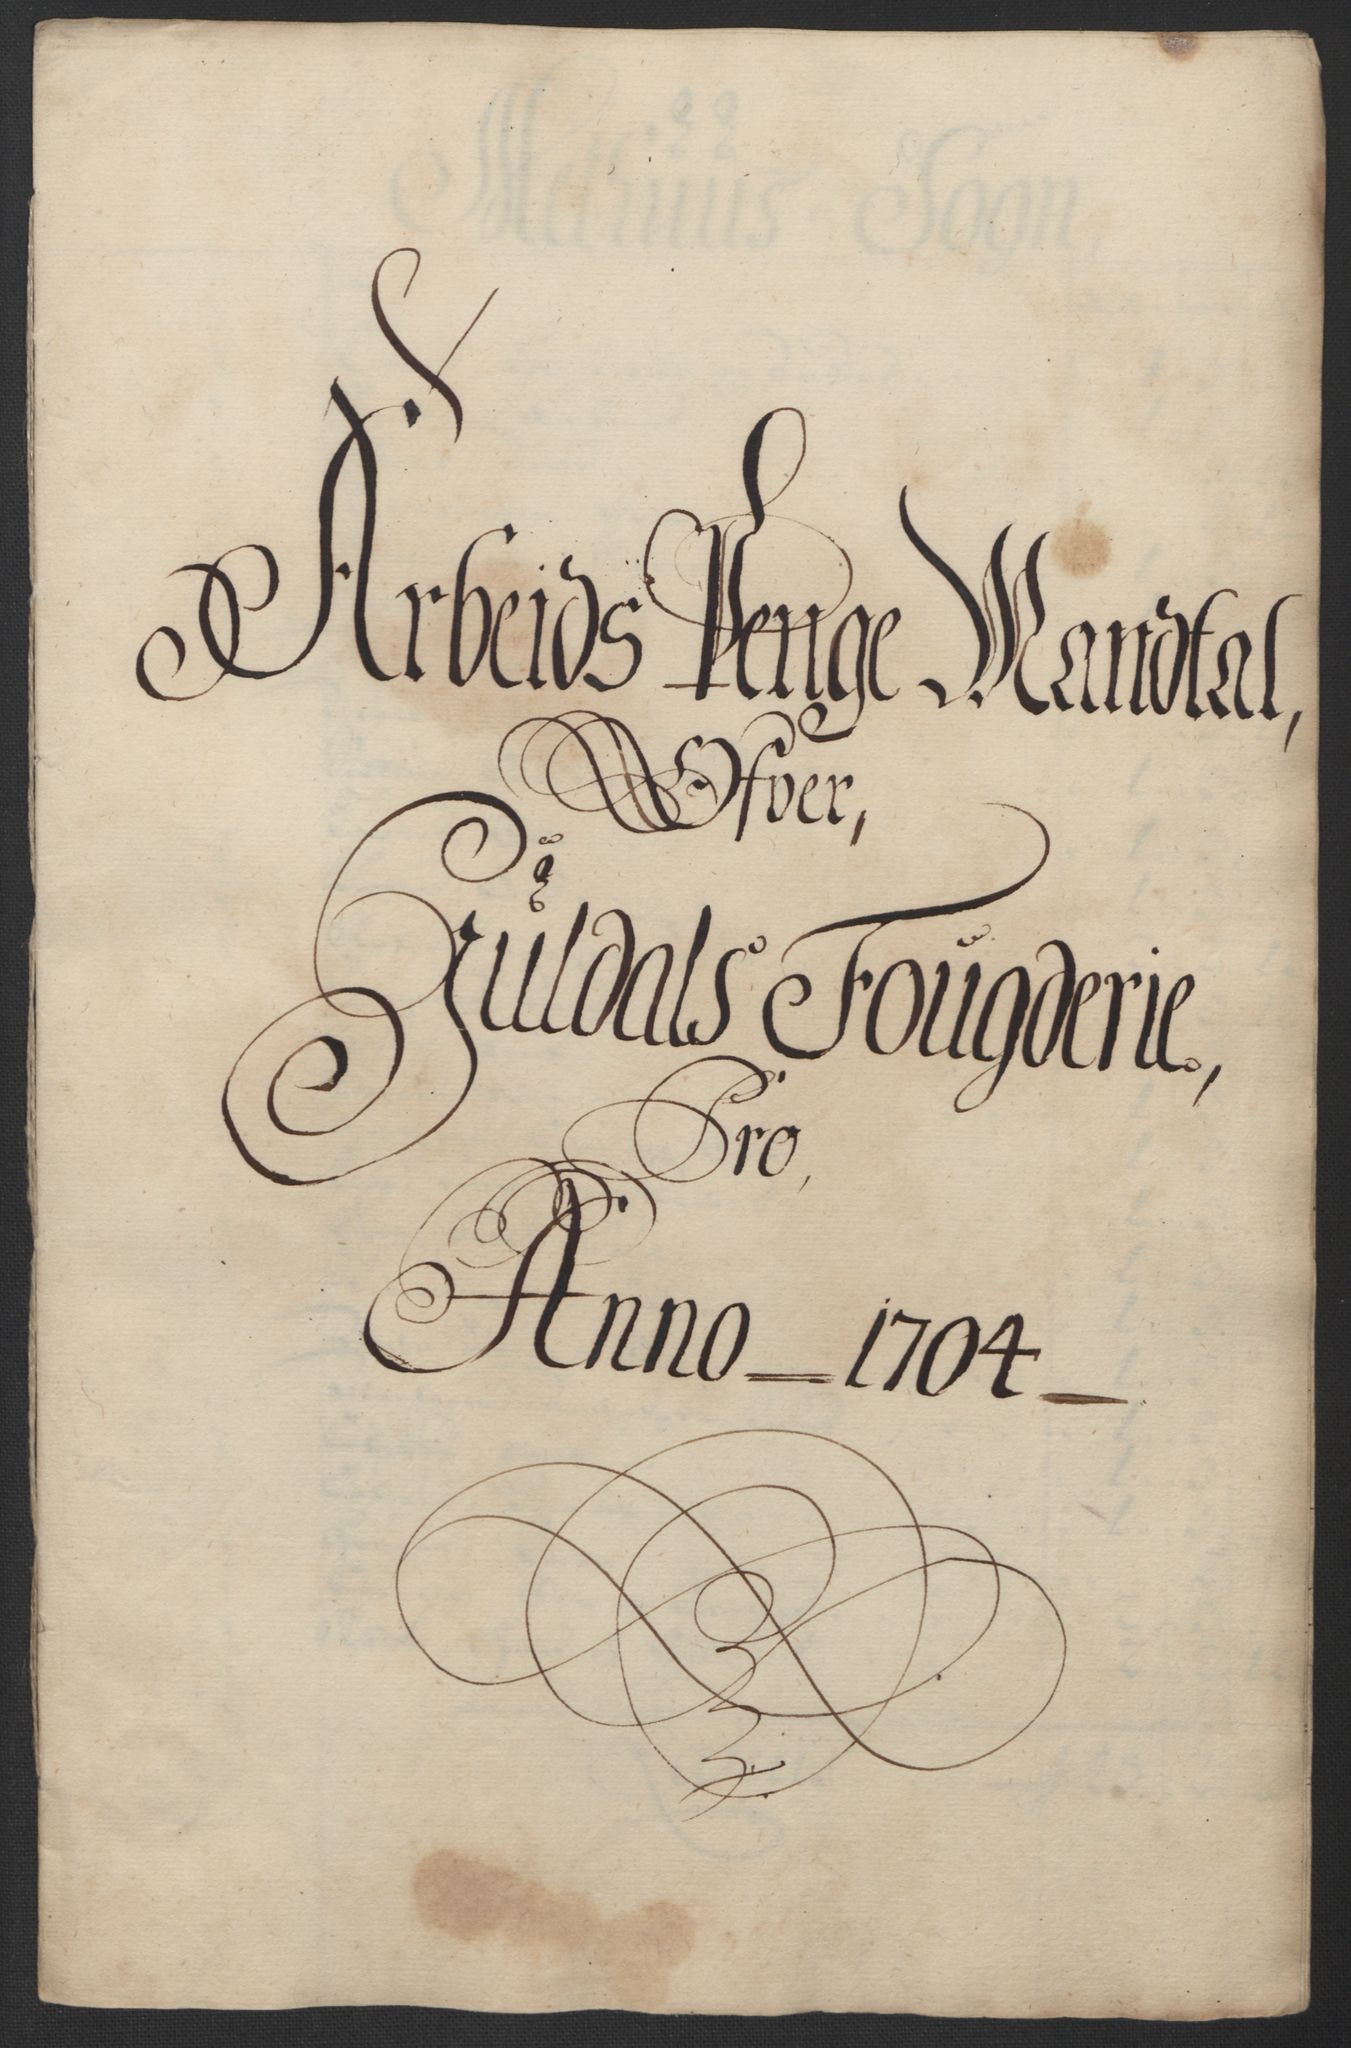 Arbeids Penge Mandtal,
Ofver,
Guldals Fougderie,
Pro,
Anno 1704